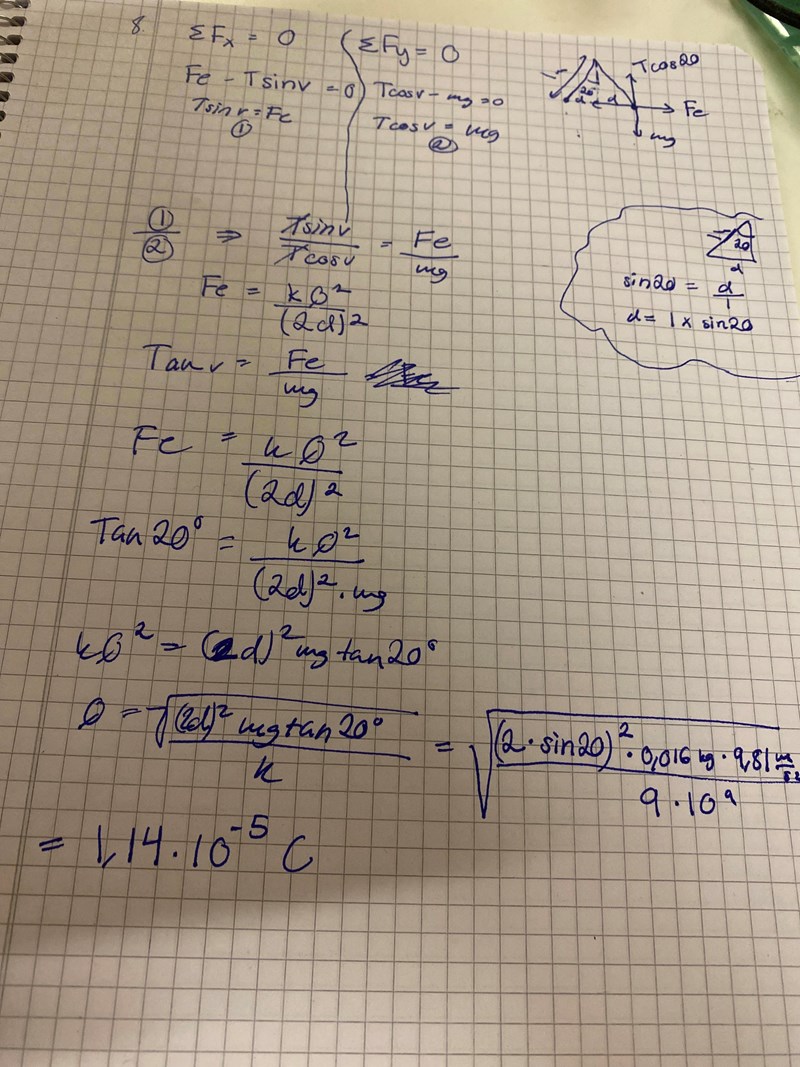 8.
ΣFx = 0
ΣFy = 0
Fe - Tsinv = 0
Tcosv - mg = 0
Tsinv = Fe
①
Tcosv = mg
②
Tcos20
20
d
d
Fe
mg
①/② ⇒ Tsinv/Tcosv = Fe/mg
Fe = kQ²/(2d)²
20
d
sin20 = d/1
d = 1 x sin20
Tanv = Fe/mg
Fe = kQ²/(2d)²
Tan20° = kQ²/(2d)².mg
kQ² = (2d)²mgtan20°
Q = √((2d)² mgtan20°/k) = √((2·sin20)²·0,016kg·9,81m/s²/9·10⁹)
= 1,14·10⁻⁵ C